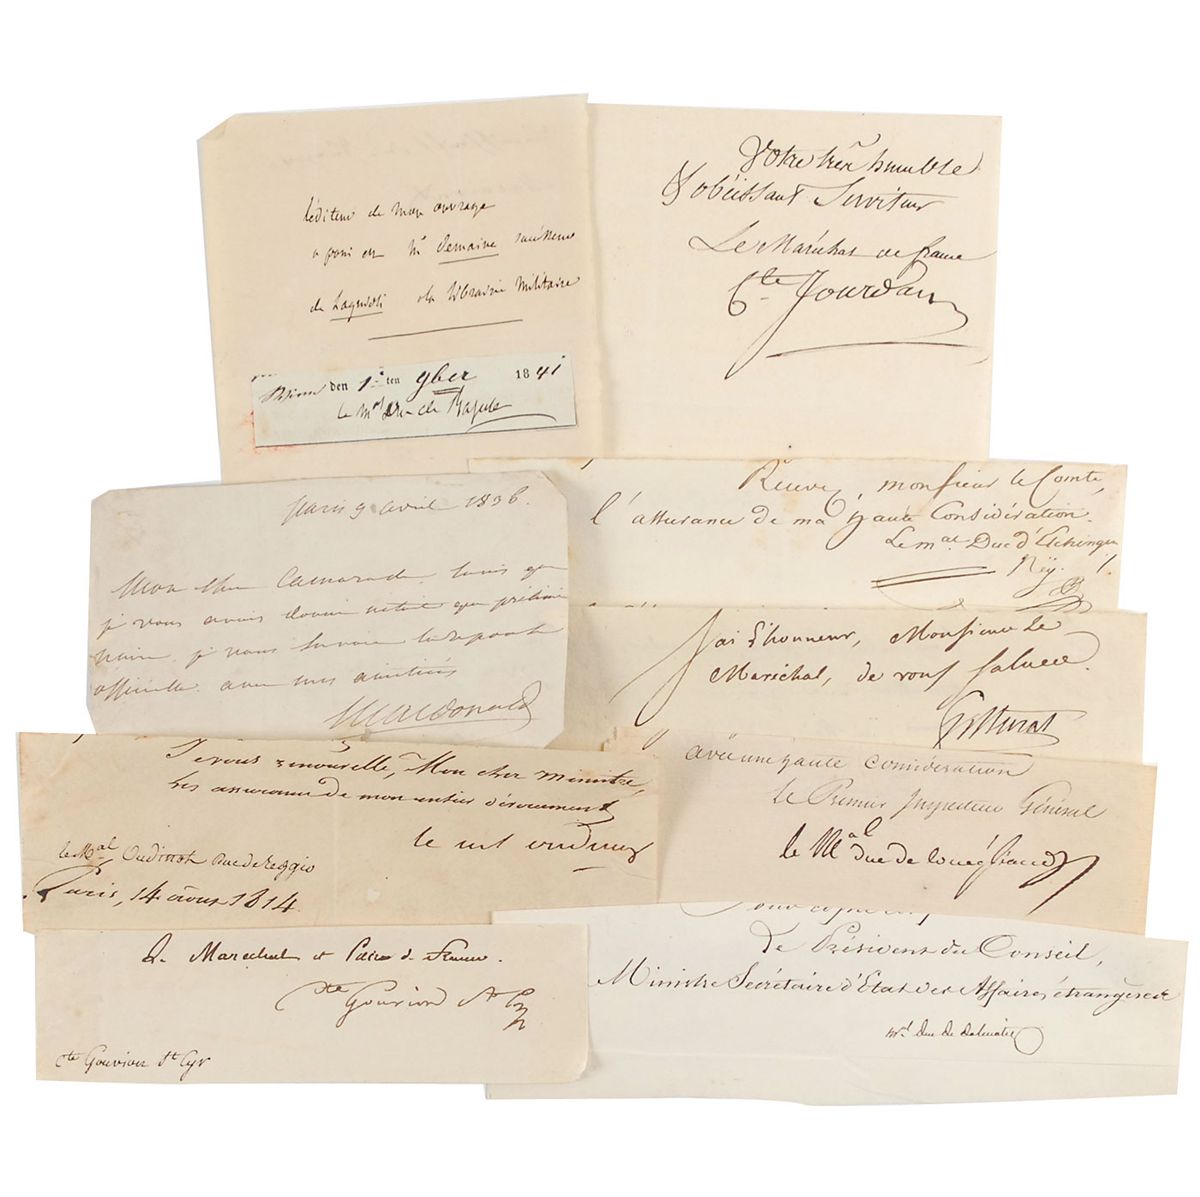 l'éditeur de mon ouvrage
a paris est Mr Demaine successeur
de Laguioti de la librairie militaire
den 1 ten 9ber 1841
le Mal Duc de Raguse
Votre très humble
& obéissant Serviteur
Le Maréchal de france
Cte Jourdan
Paris 9 avril 1836.
Mon cher Camarade,
je vous avais donné
je vous
officielle. avec mes amitiés
Macdonald
Recevez, monsieur le Comte,
l'assurance de ma haute Considération.
Le mal Duc d'Elchingen
Ney.
J'ai l'honneur, Monsieur Le
Maréchal, de vous saluer.
Murat
Je vous renouvelle, Mon cher ministre,
les assurance de mon entier dévouement
le mal oudinot
le Mal Oudinot Duc de Reggio
Paris, 14 aout 1814
avec une haute considération
le Premier Inspecteur Général
le Mal duc de conegliano
Le Marechal et Pair de France.
Cte Gouvion St Cyr
Cte Gouvion St Cyr
Le Président du Conseil,
Ministre Secrétaire d'État des Affaires étrangères
Mal duc de dalmatie